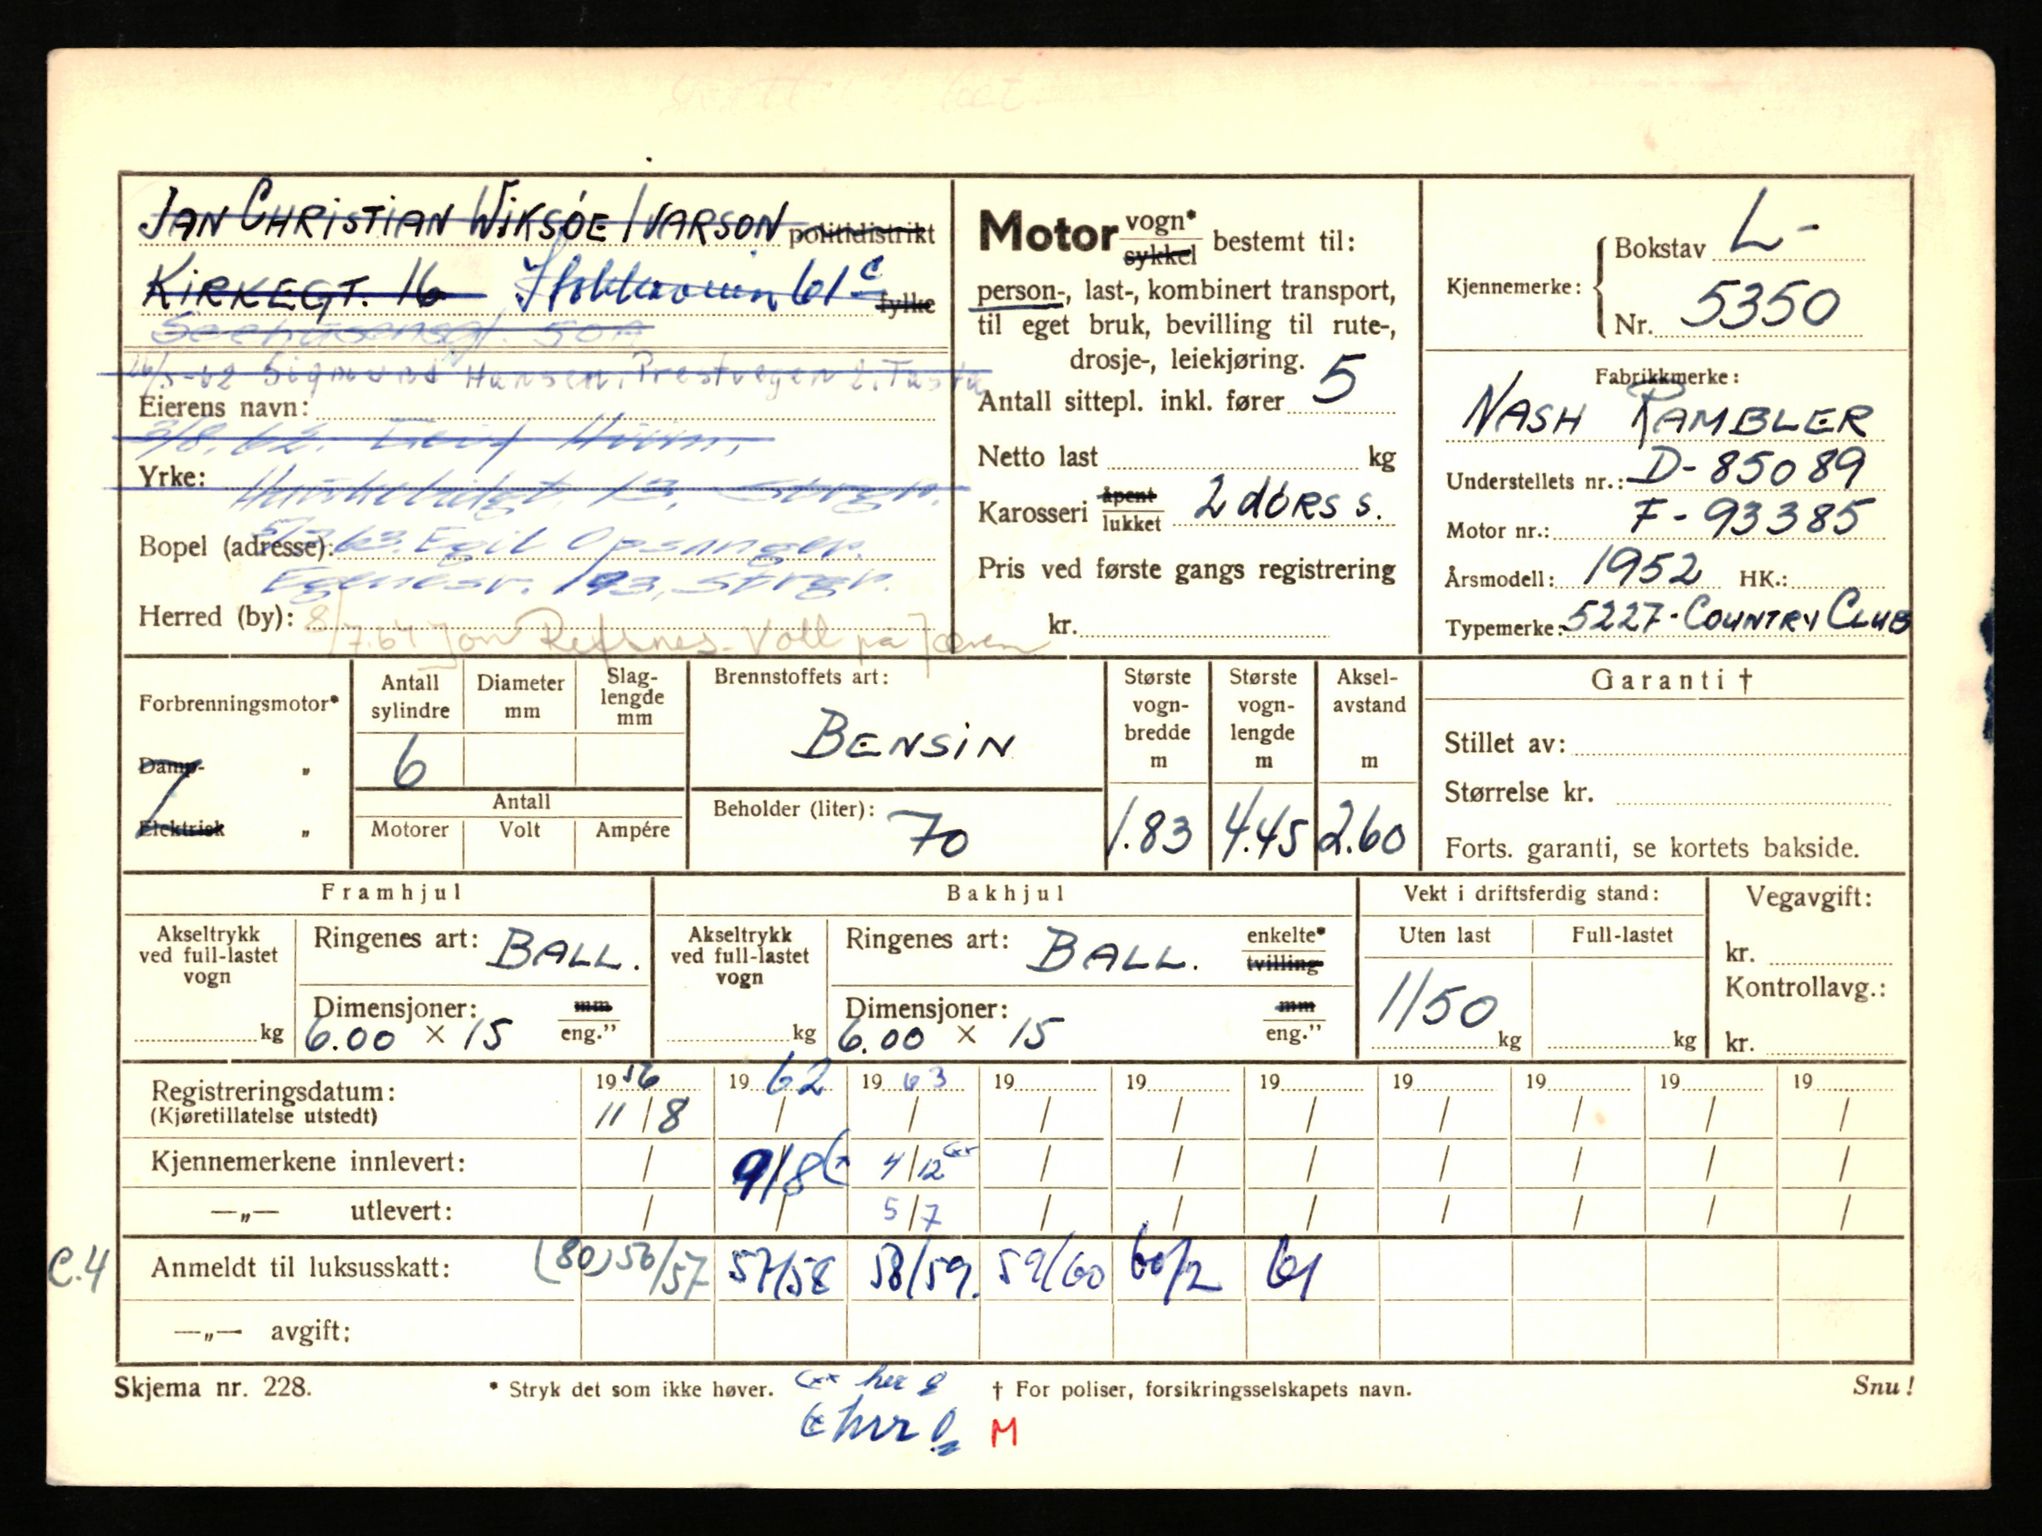 JAN CHRISTIAN WIKSØE IVARSON politidistrikt
KIRKEGT. 16 61 c fylke
50A
26/5-62 Sigmund Hansen, Prestvegen 2, Tasta
Eierens navn:
3/8.62. Leif
Yrke: 13,
Bopel (adresse): 5/7 63. Egil Opsanger.
Egenesv. 193, Stvgr.
Herred (by): 8/7.64 Jon Refsnes - Voll på Jæren
Motor vogn* / sykkel bestemt til:
person-, last-, kombinert transport,
til eget bruk, bevilling til rute-,
drosje-, leiekjøring.
Antall sittepl. inkl. fører 5
Netto last kg
Karosseri åpent / lukket 2 dørs s.
Pris ved første gangs registrering
kr.
Kjennemerke: Bokstav L-
Nr. 5350
Fabrikkmerke:
NASH RAMBLER
Understellets nr.: D-85089
Motor nr.: F-93385
Årsmodell: 1952 HK.:
Typemerke: 5227-COUNTRY CLUB
Forbrenningsmotor*
Damp- „
Elektrisk „
Antall sylindre
6
Diameter mm
Slag-lengde mm
Antall
Motorer Volt Ampére
Brennstoffets art:
BENSIN
Beholder (liter): 70
Største vogn-bredde m
1.83
Største vogn-lengde m
4.45
Aksel-avstand m
2.60
Garanti †
Stillet av:
Størrelse kr.
Forts. garanti, se kortets bakside.
Framhjul
Akseltrykk
ved full-lastet
vogn
kg
Ringenes art: BALL.
Dimensjoner: mm
6.00 × 15 eng.”
Bakhjul
Akseltrykk
ved full-lastet
vogn
kg
Ringenes art: BALL. enkelte*
tvilling
Dimensjoner: mm
6.00 × 15 eng.”
Vekt i driftsferdig stand:
Uten last Full-lastet
1150
kg kg
Vegavgift:
kr.
Kontrollavg.:
kr.
Registreringsdatum: 1956 1962 1963 19 19 19 19 19 19 19
(Kjøretillatelse utstedt) 11/8 / / / / / / / / /
Kjennemerkene innlevert: / 9/8 4/12 / / / / / / /
—„— utlevert: / / 5/7 / / / / / / /
C.4 Anmeldt til luksusskatt: (80) 56/57 57/58 58/59. 59/60 60/2 61
—„— avgift:
Skjema nr. 228. * Stryk det som ikke høver. † For poliser, forsikringsselskapets navn. Snu!
M